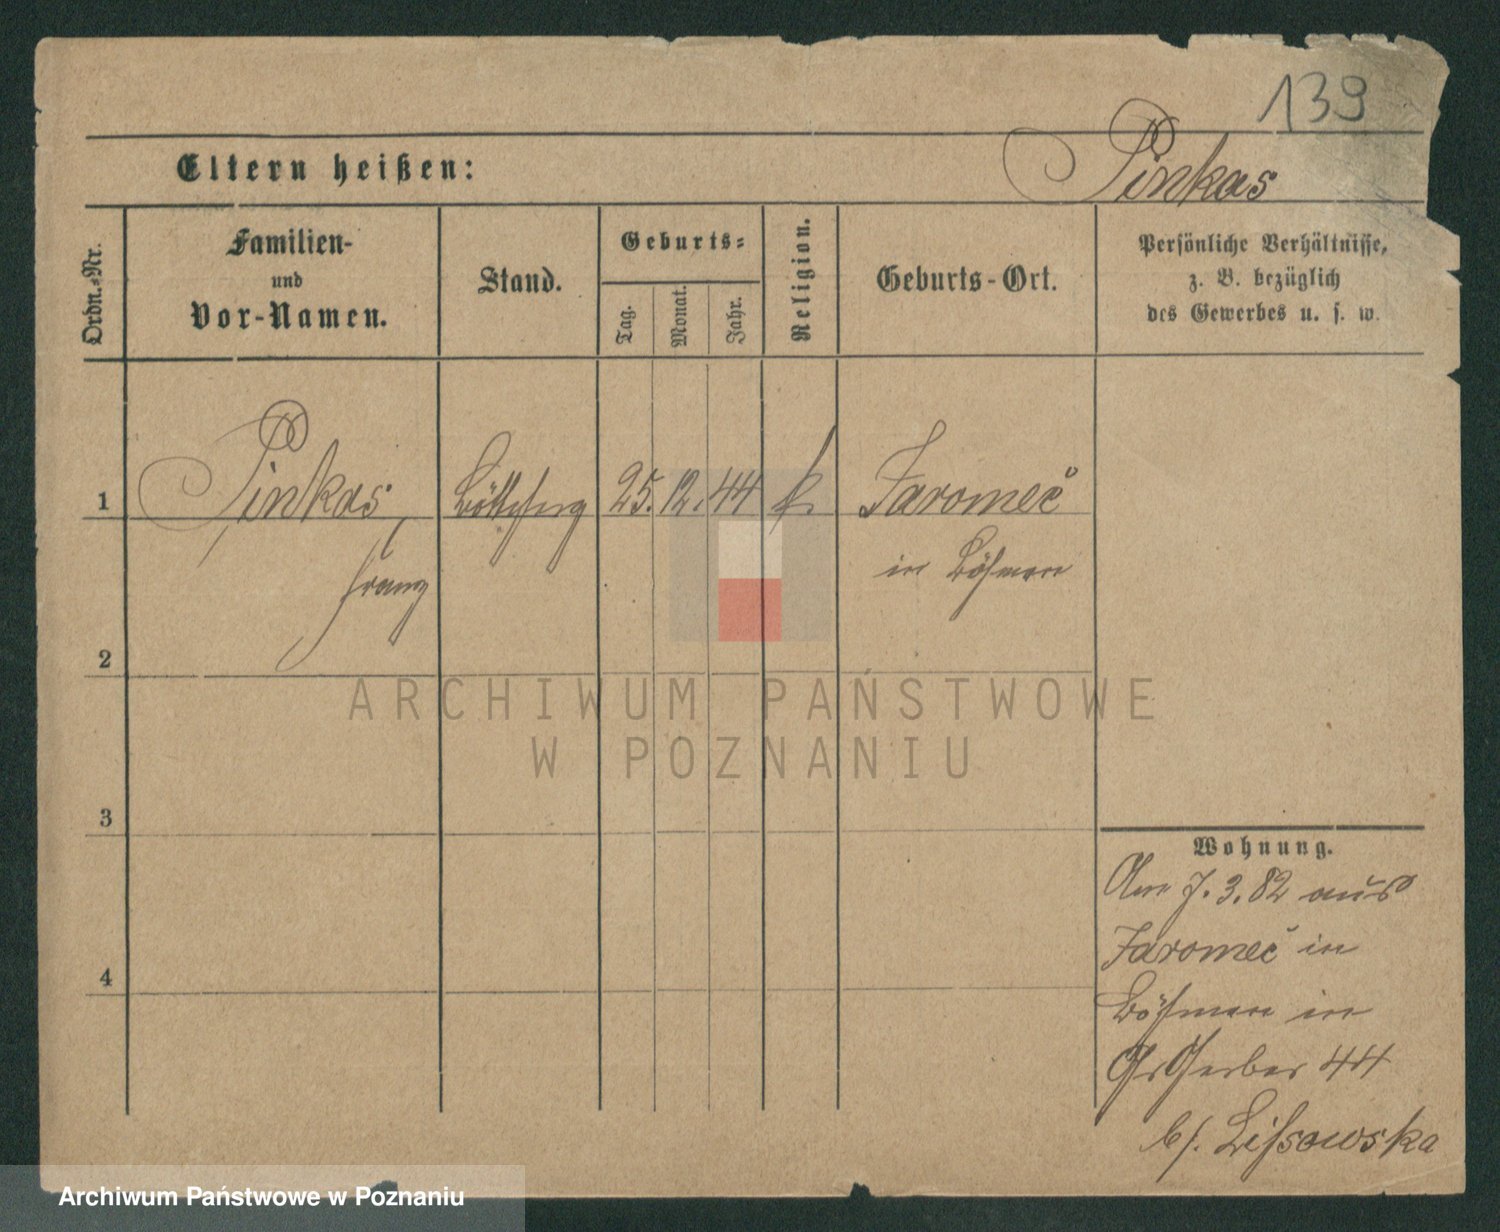 139
Eltern heißen:
Pinkas
Ordn.-Nr.
Familien-
und
Vor-Namen.
Stand.
Geburts-
Tag.
Monat.
Jahr.
Religion.
Geburts-Ort.
Persönliche Verhältnisse,
z. B. bezüglich
des Gewerbes u. s. w.
1
Pinkas,
Franz
25. 12. 44
k.
Jaromeč
in Böhmen
2
3
4
Wohnung.
Am 7. 3. 82 aus
Jaromeč in
Böhmen in
Gr Gerber 44
b/. Lissowska
ARCHIWUM PAŃSTWOWE
W POZNANIU
Archiwum Państwowe w Poznaniu